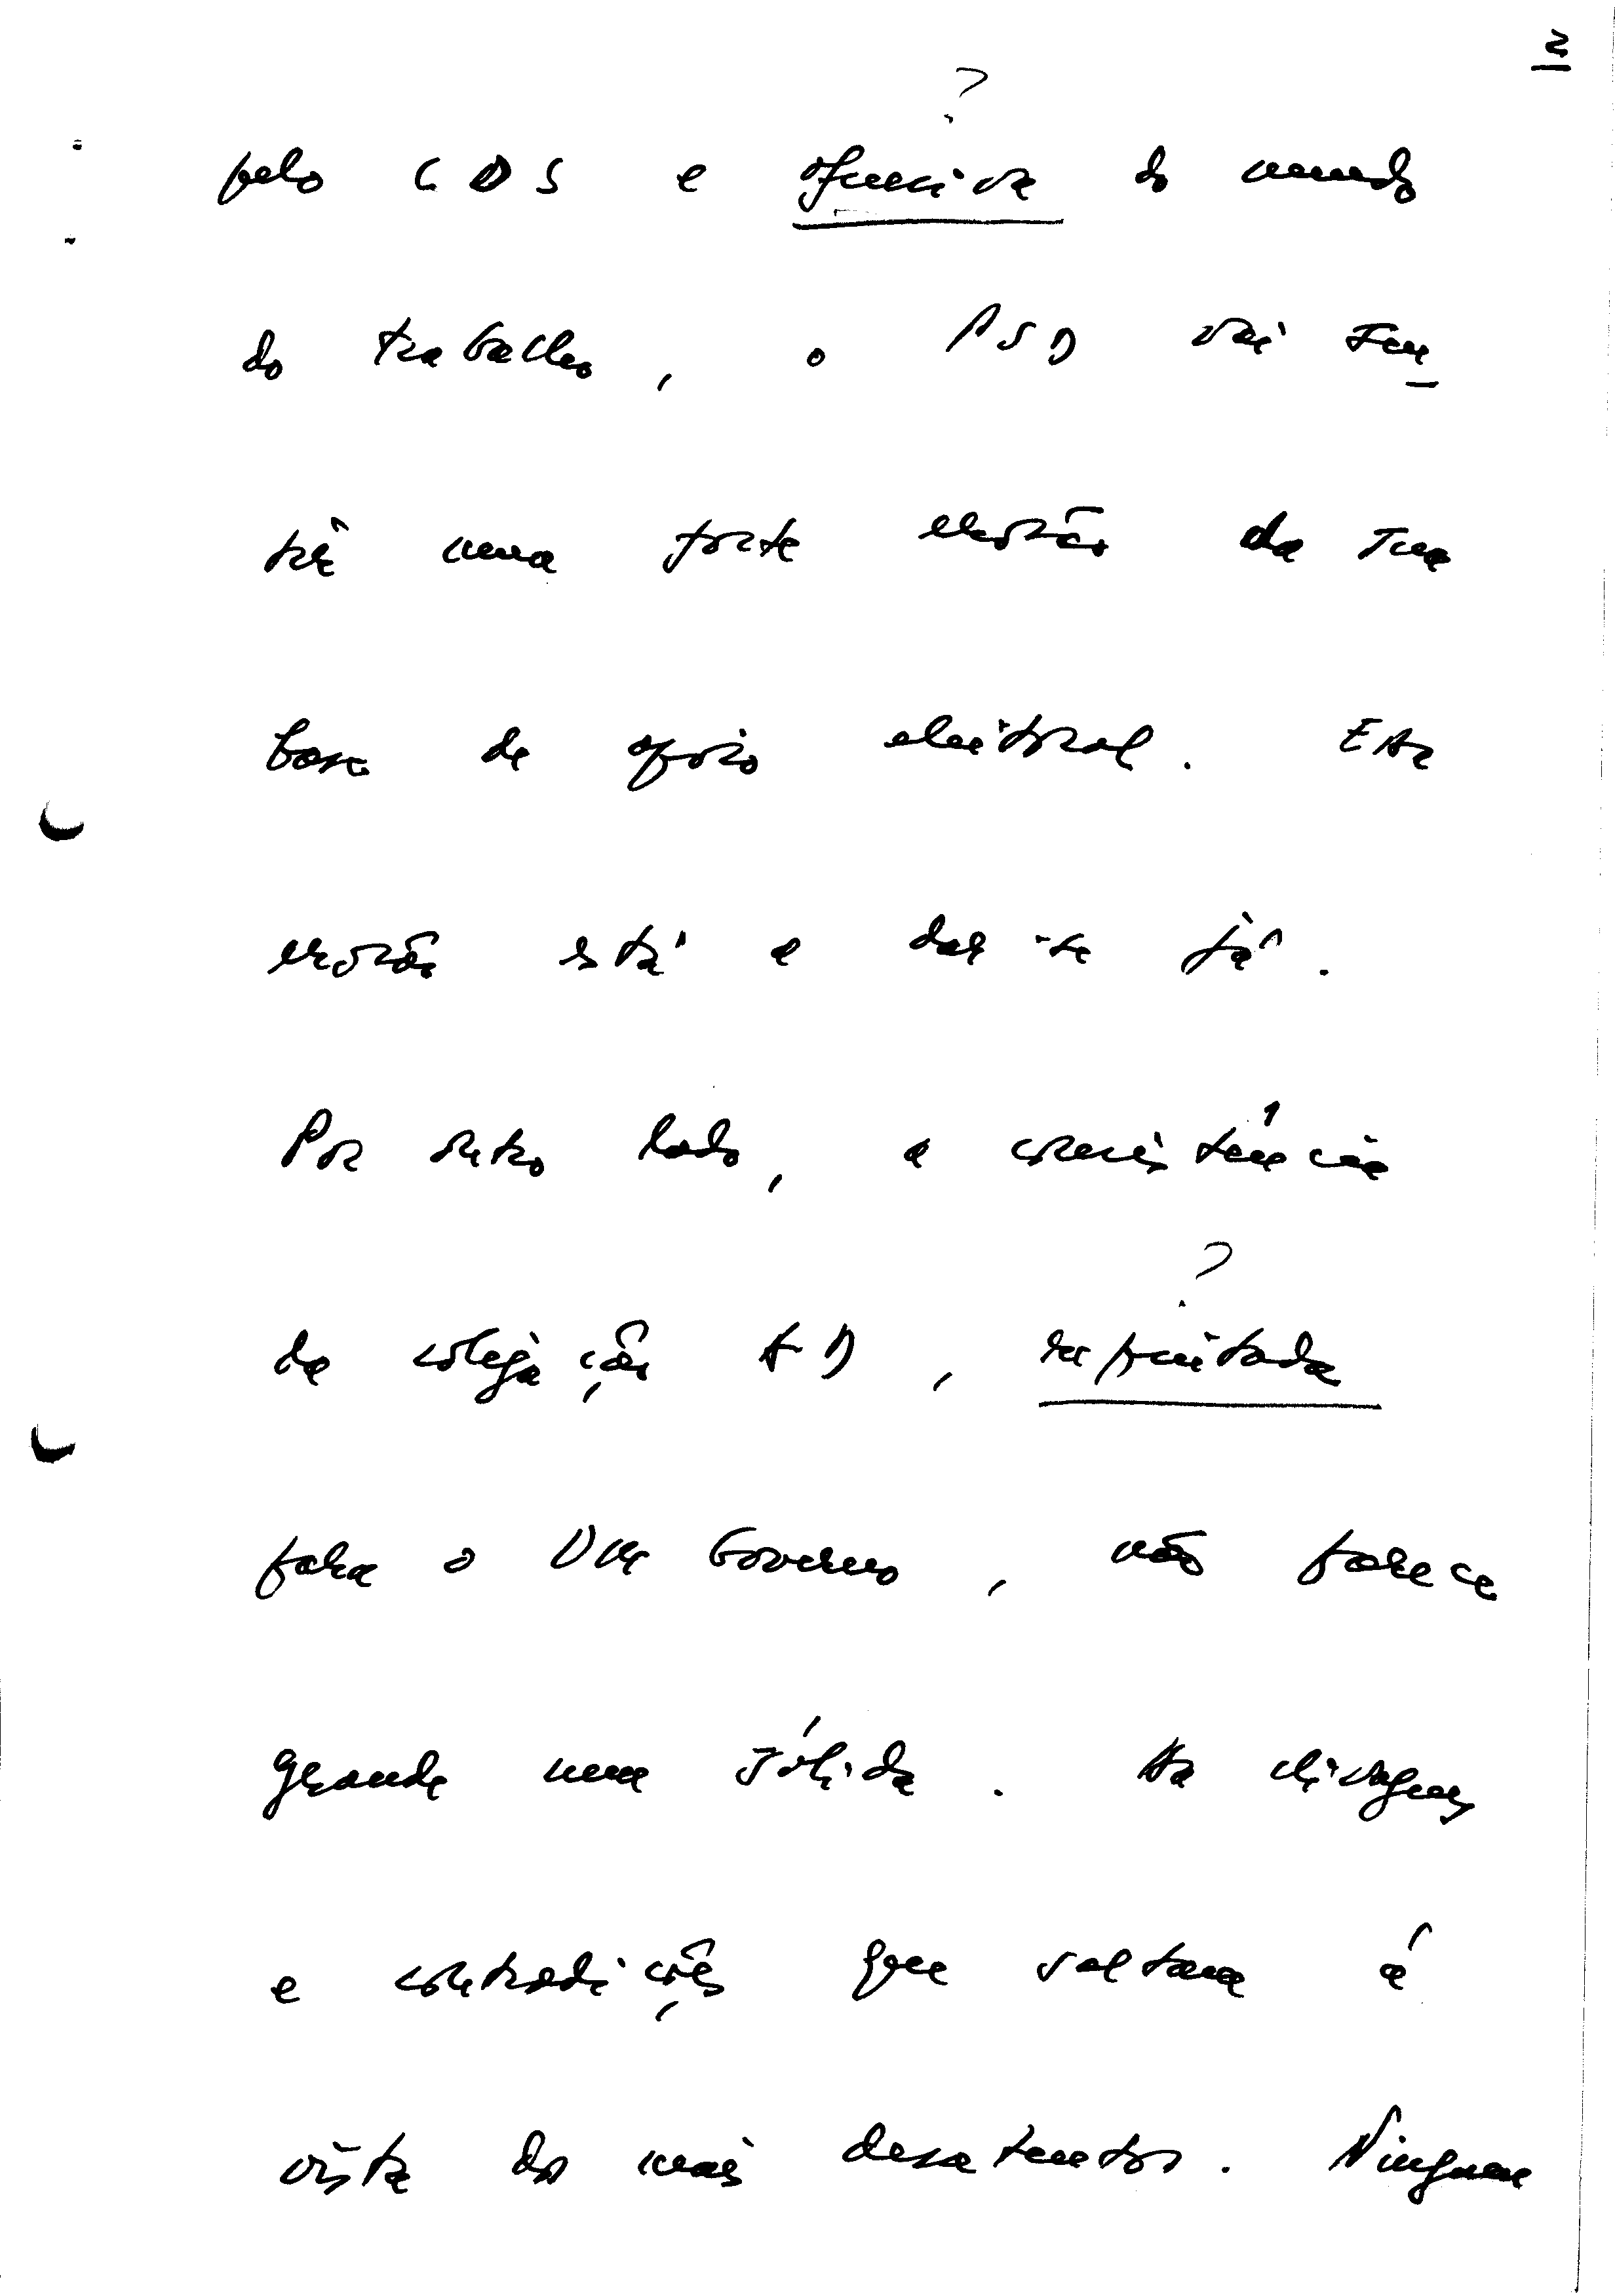 2
?
pelo CDS e ofensiva do mundo
do trabalho, o PSD vai sen
tir uma forte erosão da sua
base de apoio eleitoral. Esta
erosão está a dar-se já.
Por outro lado, a consistência
da coligação AD,
?
para o VIII Governo, não parece
grande nem sólida. As clivagens
e contradições que saltam á
vista dos mais desatentos. Ninguem